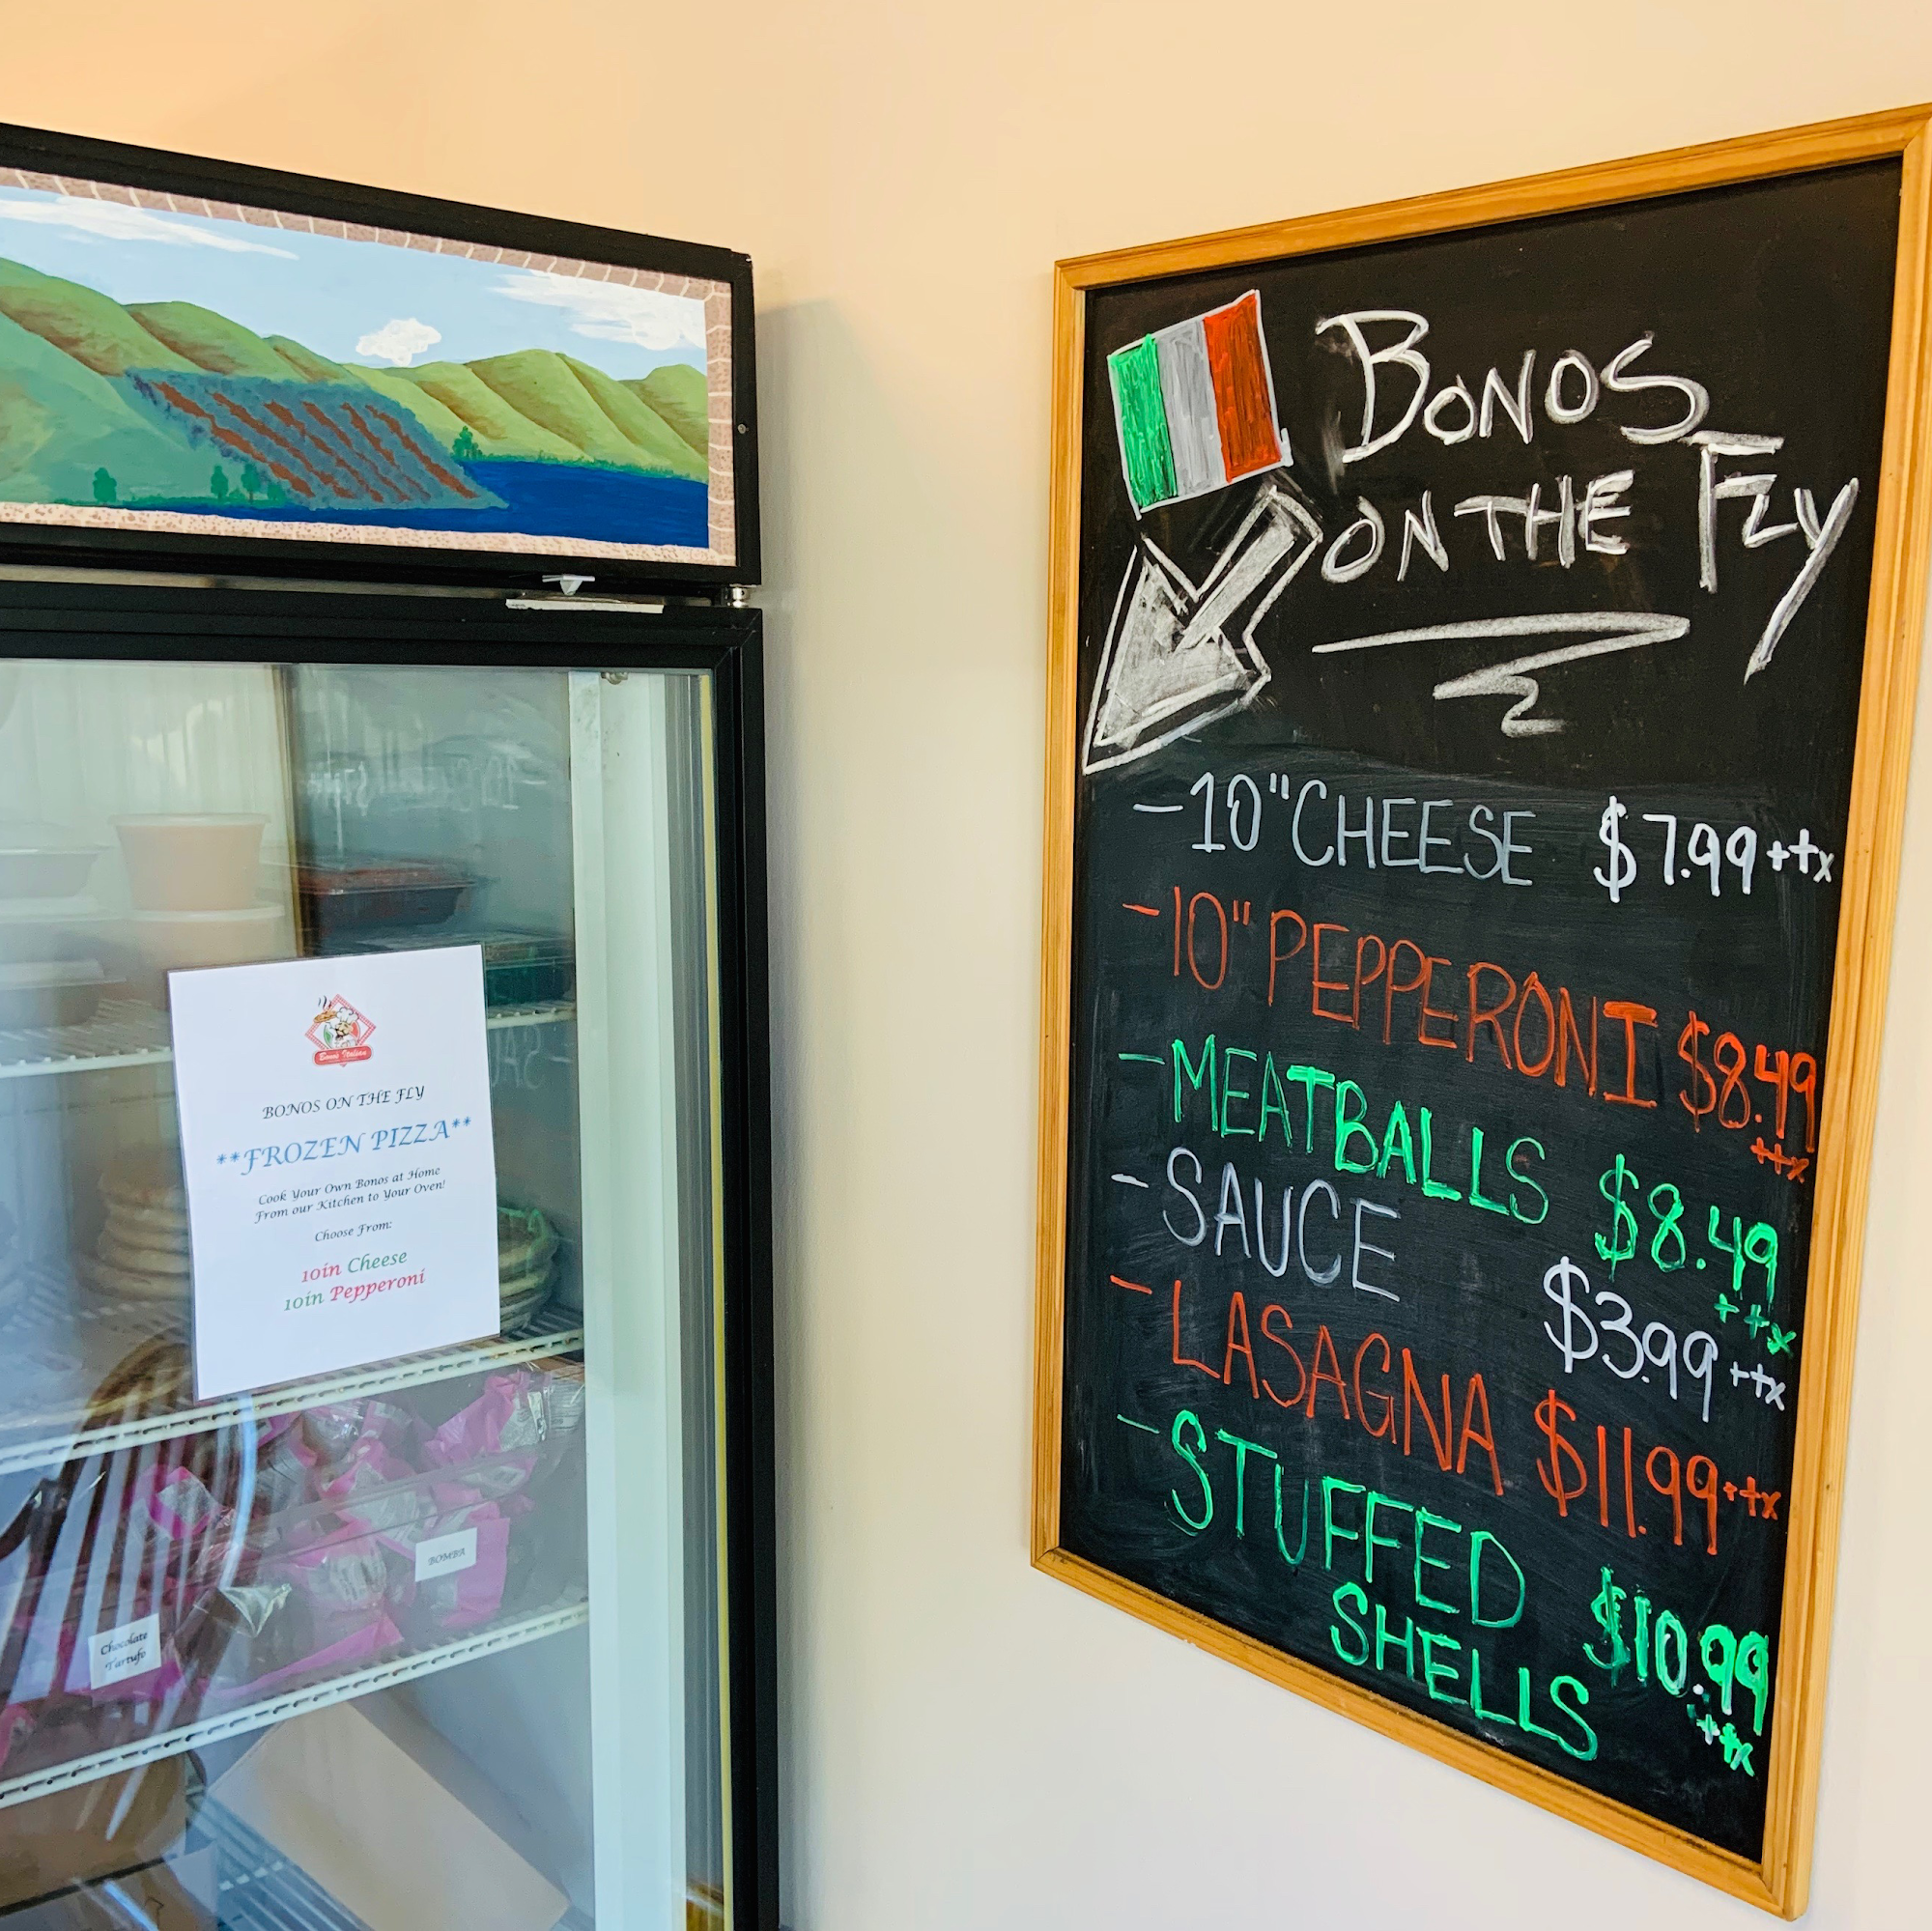 BONOS
ON THE FLY
- 10" CHEESE $7.99 + tx
- 10" PEPPERONI $8.49
+ tx
- MEATBALLS $8.49
+ tx
- SAUCE $3.99 + tx
- LASAGNA $11.99 + tx
- STUFFED
SHELLS $10.99
+ tx
Bonos Italian
BONOS ON THE FLY
**FROZEN PIZZA**
Cook Your Own Bonos at Home
From our Kitchen to Your Oven!
Choose From:
10in Cheese
10in Pepperoni
BOMBA
Chocolate
Tartufo